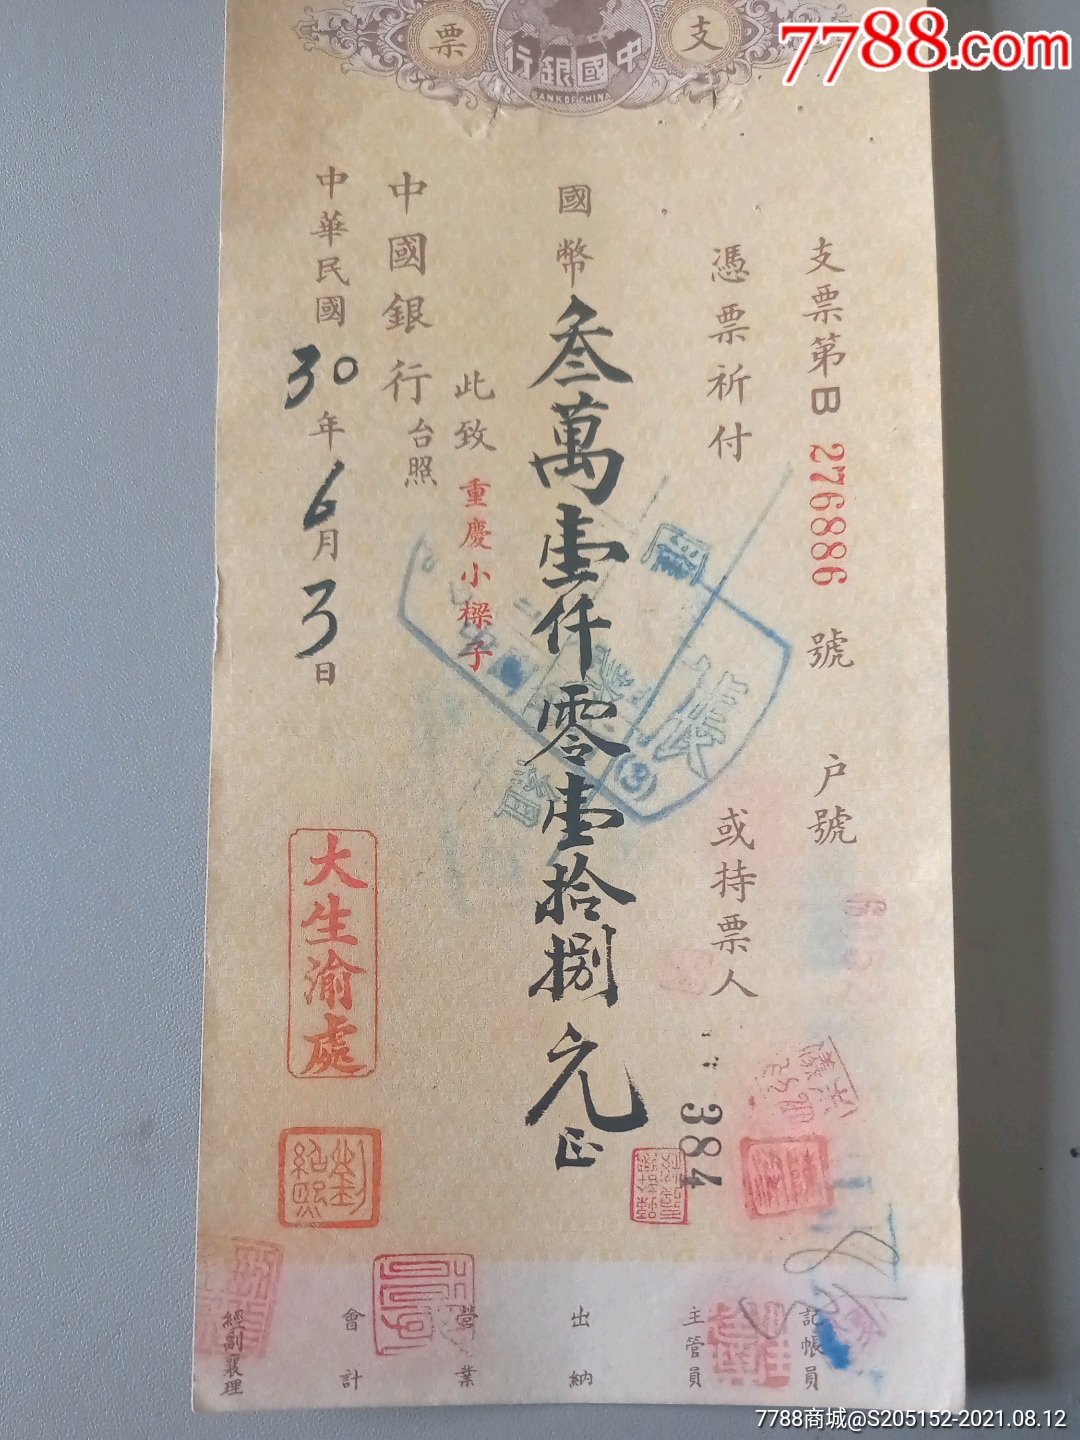 7788.com
支票
中國銀行
BANK OF CHINA
支票第B 276886 號 户號
憑票祈付 或持票人
384
國幣叁萬壹仟零壹拾捌元正
此致 重慶小樑子
中國銀行台照
中華民國30年6月3日
大生渝處
劉紹熙
(3)
記帳員
主管員
出納
營業
會計
經副襄理
7788商城@S205152-2021.08.12